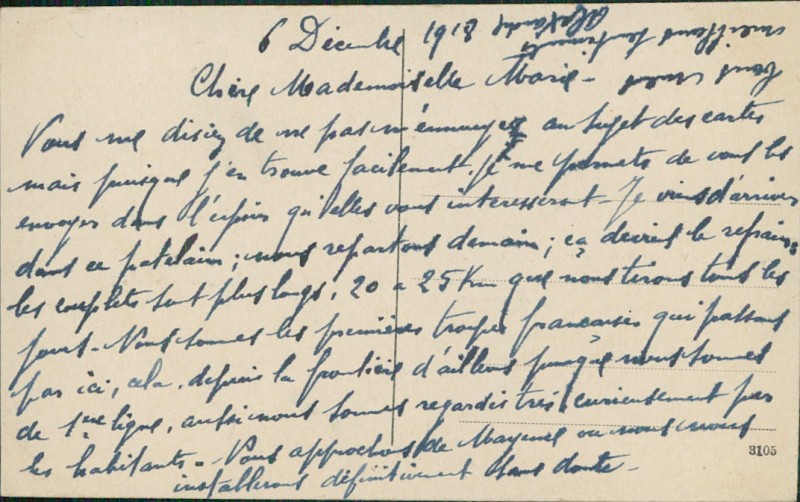 6 Décembre 1918
Chère Mademoiselle Marie -
Vous me disiez de ne pas m'ennuyer au sujet des cartes
mais puisque j'en trouve facilement, je me permets de vous les
envoyer dans l'espoir qu'elles vous interesseront - Je viens d'arriver
dans ce patelain; nous repartons demain; ça devient le refrain:
les couplets sont plus longs, 20 a 25 Km que nous tirons tous les
jours - Nous sommes les premières troupes françaises qui passons
par ici, cela, depuis la frontière d'ailleurs puisque nous sommes
de 1ere ligne, aussi nous sommes regardés très curieusement par
les habitants - Nous approchons de Mayence ou nous nous
installerons définitivement sans doute -
meilleurs sentiments
3105